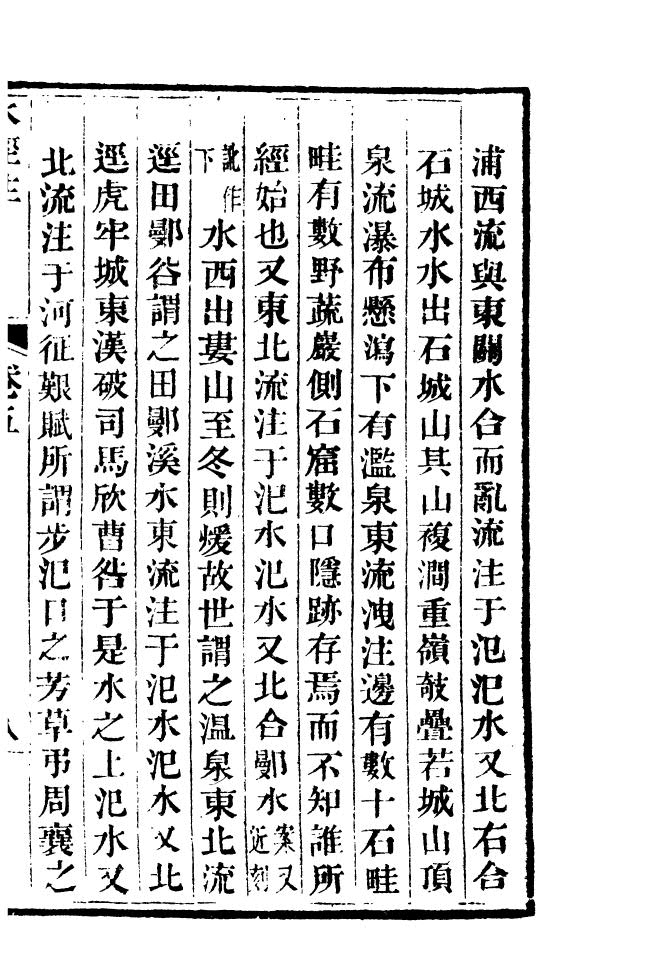 浦西流與東關水合而亂流注于氾氾水又北右合
石城水水出石城山其山複澗重嶺攲疊若城山頂
泉流瀑布懸瀉下有濫泉東流洩注邊有數十石畦
畦有數野蔬巖側石窟數口隱跡存焉而不知誰所
經始也又東北流注于汜水汜水又北合鄤水案又近刻
訛作下水西出婁山至冬則煖故世謂之温泉東北流
逕田鄤谷謂之田鄤溪水東流注于汜水汜水又北
逕虎牢城東漢破司馬欣曹咎于是水之上汜水又
北流注于河征艱賦所謂步汜口之芳草弔周襄之
水經注 卷五 八